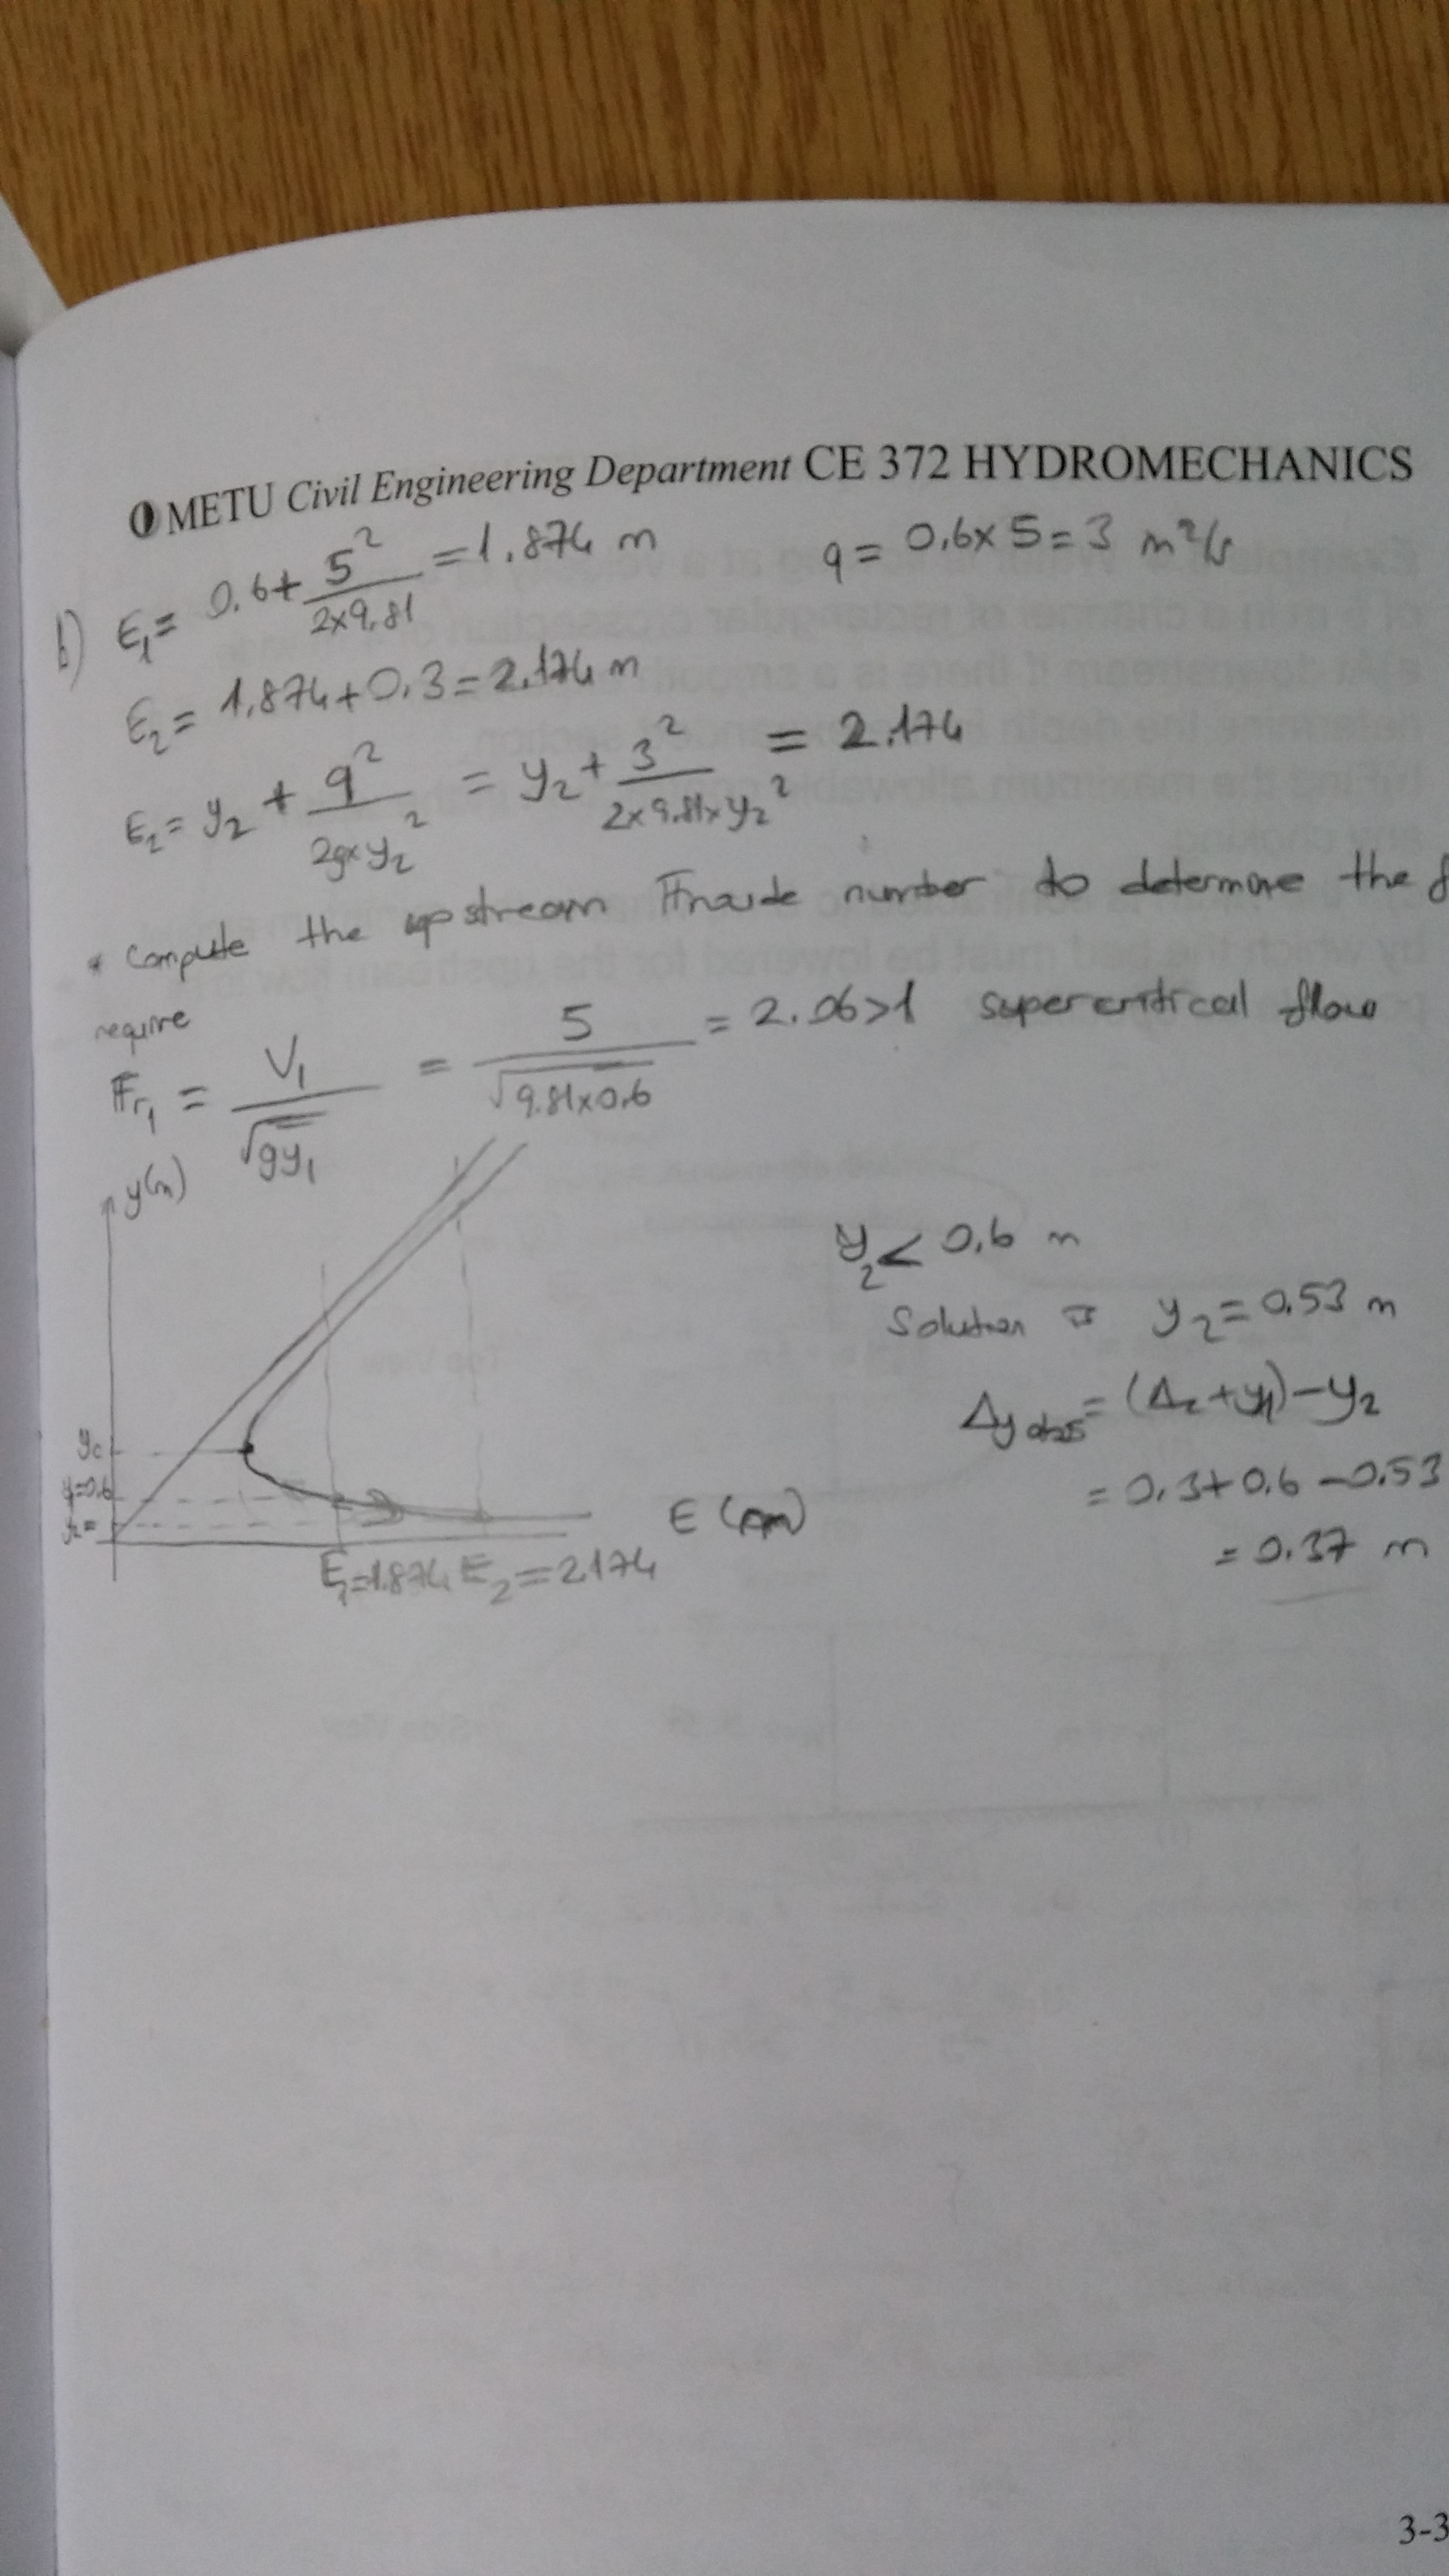 METU Civil Engineering Department CE 372 HYDROMECHANICS
b) E₁ = 0.6 + 5² / (2x9.81) = 1.874 m
q = 0.6 x 5 = 3 m²/s
E₂ = 1.874 + 0.3 = 2.174 m
E₂ = y₂ + q² / (2gxy₂²) = y₂ + 3² / (2x9.81xy₂²) = 2.174
* Compute the upstream Froude number to determine the
require
Fr₁ = V₁ / √(gy₁) = 5 / √(9.81x0.6) = 2.06 > 1 supercritical flow
y(m)
y₂ < 0.6 m
Solution is y₂ = 0.53 m
Δy abs = (Δz + y₁) - y₂
yc
y₁=0.6
= 0.3 + 0.6 - 0.53
y₂ =
E (m)
= 0.37 m
E₁=1.874 E₂ = 2.174
3-3